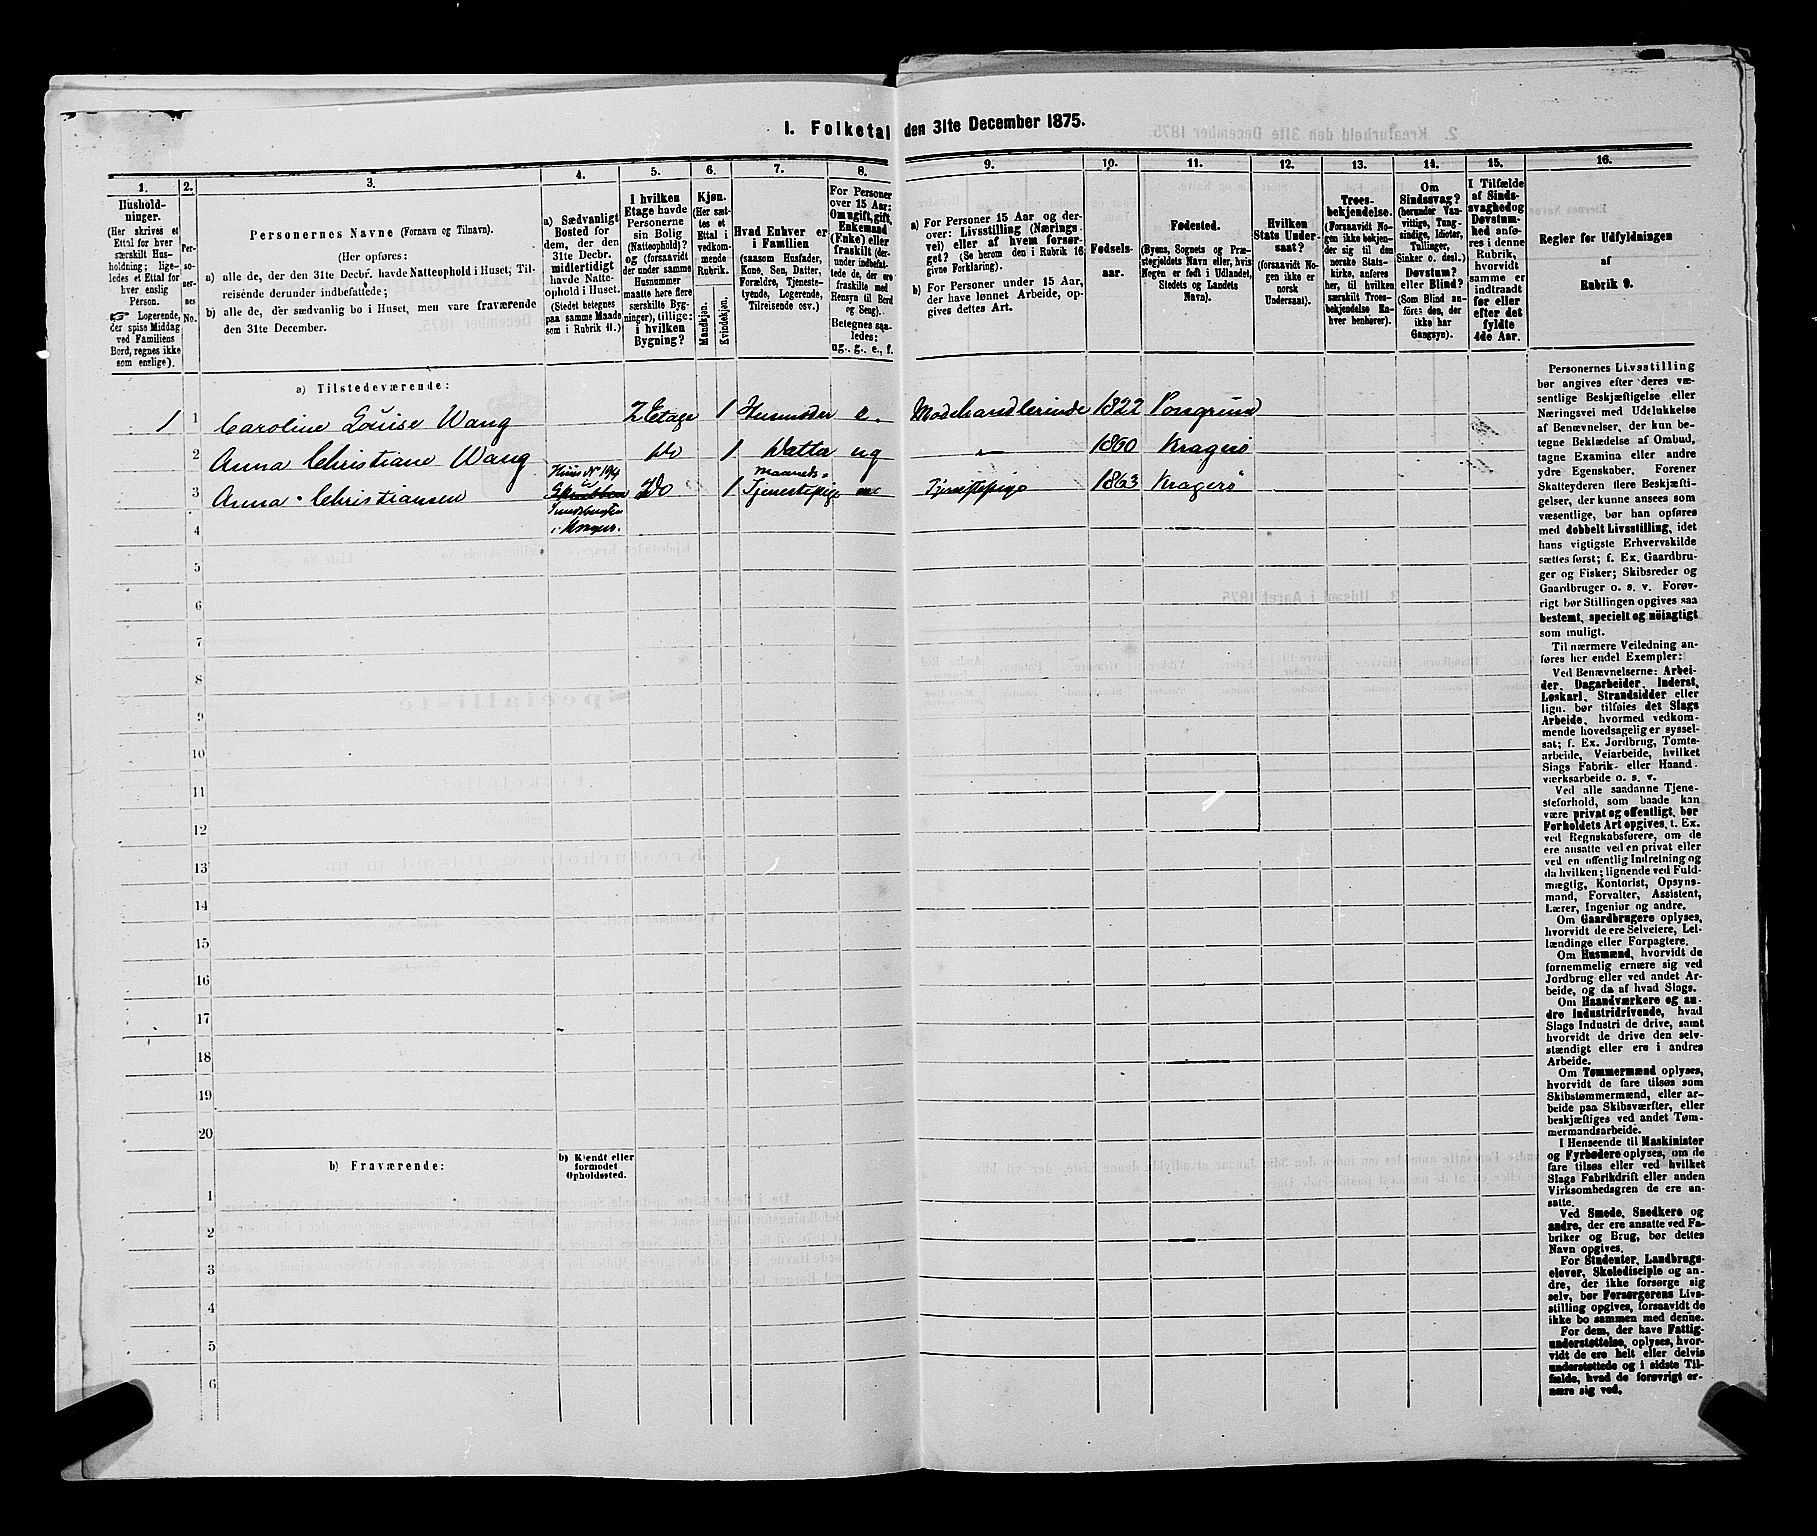 1. Folketal den 31te December 1875.
1. 2. 3. 4. 5. 6. 7. 8. 9. 10. 11. 12. 13. 14. 15. 16.
Hushold-
ninger.
(Her skrives et
Ettal for hver
særskilt Hus-
holdning; lige-
ledes et Ettal for
hver enslig
Person.
☞ Logerende,
der spise Middag
ved Familiens
Bord, regnes ikke
som enslige).
Per-
so-
ner-
nes
No.
Personernes Navne (Fornavn og Tilnavn).
(Her opføres:
a) alle de, der den 31te Decbr. havde Natteophold i Huset, Til-
reisende derunder indbefattede;
b) alle de, der sædvanlig bo i Huset, men vare fraværende
den 31te December.
a) Sædvanligt
Bosted for
dem, der den
31te Decbr.
midlertidigt
havde Natte-
ophold i Huset.
(Stedet betegnes
paa samme Maade
som i Rubrik 11.)
I hvilken
Etage havde
Personerne
sin Bolig
(Natteophold)?
og (forsaavidt
der under samme
Husnummer
maatte høre flere
særskilte Byg-
ninger), tillige:
i hvilken
Bygning?
Kjøn.
(Her sæt-
tes et
Ettal i
vedkom-
mende
Rubrik.
Mandkjøn.
Kvindekjøn.
Hvad Enhver er
i Familien
(saasom Husfader,
Kone, Søn, Datter,
Forældre, Tjeneste-
tyende, Logerende,
Tilreisende osv.)
For Personer
over 15 Aar:
Om ugift, gift,
Enkemand
(Enke) eller
fraskilt (der-
under indbefat-
tede de, der ere
fraskilte med
Hensyn til Bord
og Seng).
Betegnes saa-
ledes:
ug., g., e., f.
a) For Personer 15 Aar og der-
over: Livsstilling (Nærings-
vei) eller af hvem forsør-
get? (Se herom den i Rubrik 16
givne Forklaring).
b) For Personer under 15 Aar,
der have lønnet Arbeide, op-
gives dettes Art.
Fødsels-
aar.
Fødested.
(Byens, Sognets og Præ-
stegjeldets Navn eller, hvis
Nogen er født i Udlandet,
Stedets og Landets
Navn).
Hvilken
Stats Under-
saat?
(forsaavidt No-
gen ikke er
norsk
Undersaat).
Troes-
bekjendelse.
(Forsaavidt No-
gen ikke bekjen-
der sig til den
norske Stats-
kirke, anføres
her, til hvilken
særskilt Troes-
bekjendelse En-
hver henhører).
Om
Sindssvag?
(herunder Van-
vittige, Tung-
sindige, Idioter,
Tullinger,
Sinker o. desl.).
Døvstum?
eller Blind?
(Som Blind an-
føres den, der
ikke har
Gangsyn).
I Tilfælde
af Sinds-
svaghed og
Døvstum-
hed anfø-
res i denne
Rubrik,
hvorvidt
samme er
indtraadt
før eller
efter det
fyldte
4de Aar.
Regler for Udfyldningen
af
Rubrik 9.
a) Tilstedeværende:
1 1 Caroline Louise Wang 2 Etage 1 Husmoder e. Modehandlerinde 1822 Porsgrund
2 Anna Christiane Wang Do 1 Datter ug 1860 Kragerø
3 Anna Christiansen Huus No 194 Do 1 Maaneds-
Tjenestepige Tjenestepige 1863 Kragerø
4
5
6
7
8
9
10
11
12
13
14
15
16
17
18
19
20
b) Fraværende:
b) Kjendt eller
formodet
Opholdssted.
1
2
3
4
5
6
Personernes Livsstilling
bør angives efter deres væ-
sentlige Beskjæftigelse eller
Næringsvei med Udelukkelse
af Benævnelser, der kun be-
tegne Beklædelse af Ombud,
tagne Examina eller andre
ydre Egenskaber. Forener
Skatteyderen flere Beskjæfti-
gelser, der kunne ansees som
væsentlige, bør han opføres
med dobbelt Livsstilling, idet
hans vigtigste Erhvervskilde
sættes først; f. Ex. Gaardbru-
ger og Fisker; Skibsreder og
Gaardbruger o. s. v. Forøv-
rigt bør Stillingen opgives saa
bestemt, specielt og nöiagtigt
som muligt.
Til nærmere Veiledning an-
føres her endel Exempler:
Ved Benævnelserne: Arbei-
der, Dagarbeider, Inderst,
Løskarl, Strandsidder eller
lign. bør tilføies det Slags
Arbeide, hvormed vedkom-
mende hovedsagelig er syssel-
sat; f. Ex. Jordbrug, Tomte-
arbeide, Veiarbeide, hvilket
Slags Fabrik- eller Haand-
værksarbeide o. s. v.
Ved alle saadanne Tjene-
steforhold, som baade kan
være privat og offentligt, bør
Forholdets Art opgives, t. Ex.
ved Regnskabsførere, om de
ere ansatte ved en privat eller
ved en offentlig Indretning og
da hvilken; lignende ved Fuld-
mægtig, Kontorist, Opsyns-
mand, Forvalter, Assistent,
Lærer, Ingeniør og andre.
Om Gaardbrugere oplyses,
hvorvidt de ere Selveiere, Lei-
lændinge eller Forpagtere.
Om Husmænd, hvorvidt de
fornemmelig ernære sig ved
Jordbrug eller ved andet Ar-
beide, og da af hvad Slags.
Om Haandværkere og an-
dre Industridrivende, hvad
Slags Industri de drive, samt
hvorvidt de drive den selv-
stændigt eller ere i andres
Arbeide.
Om Tømmermænd oplyses,
hvorvidt de fare tilsøs som
Skibstømmermænd, eller ar-
beide paa Skibsværfter, eller
beskjæftiges ved andet Tøm-
mermandsarbeide.
I Henseende til Maskinister
og Fyrbødere oplyses, om de
fare tilsøs eller ved hvilket
Slags Fabrikdrift eller anden
Virksomhedsgren de ere an-
satte.
Ved Smede, Snedkere og
andre, der ere ansatte ved Fa-
briker og Brug, bør dettes
Navn opgives.
For Studenter, Landbrugs-
elever, Skoledisciple og an-
dre, der ikke forsørge sig
selv, bør Forsørgerens Livs-
stilling opgives, forsaavidt de
ikke bo sammen med denne.
For dem, der have Fattig-
understøttelse, oplyses, hvor-
vidt de ere helt eller delvis
understøttede og i sidste Til-
fælde, hvad de forøvrigt er-
nære sig ved.